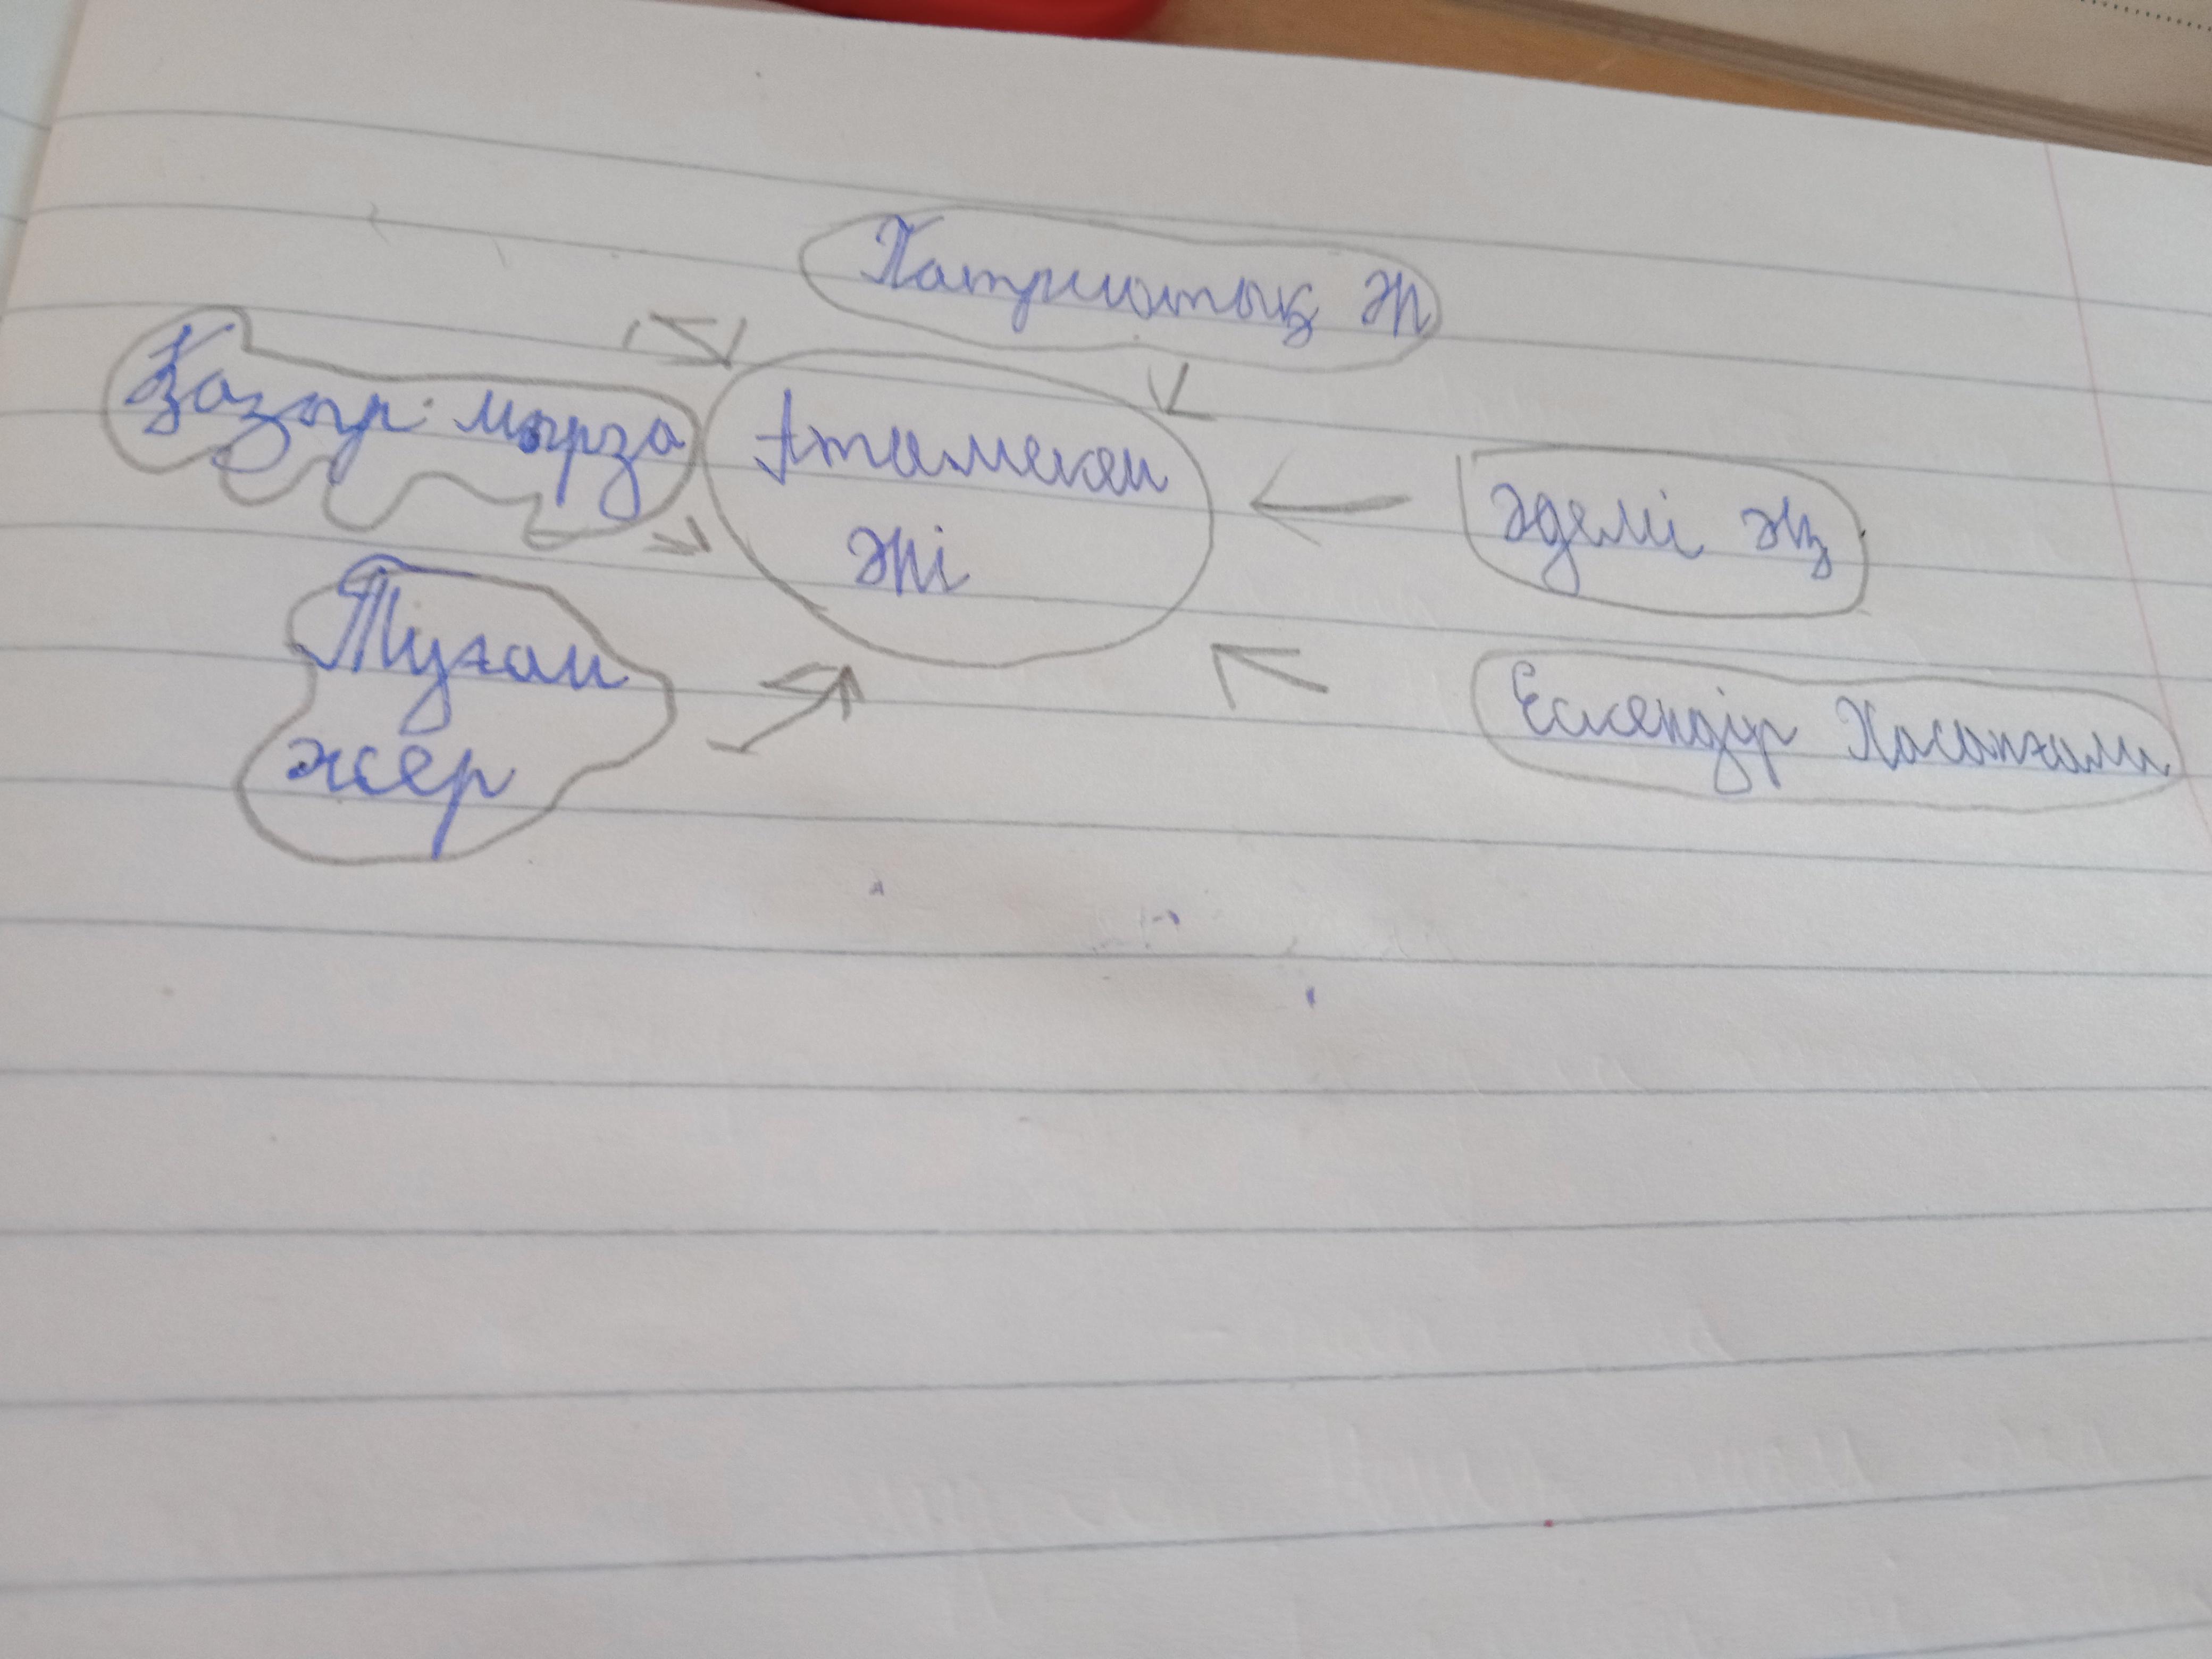 Патриоттық ән
Қадыр мырза
Атамекен
әні
әдемі ән
Туған
жер
Ескендір Хасанғали